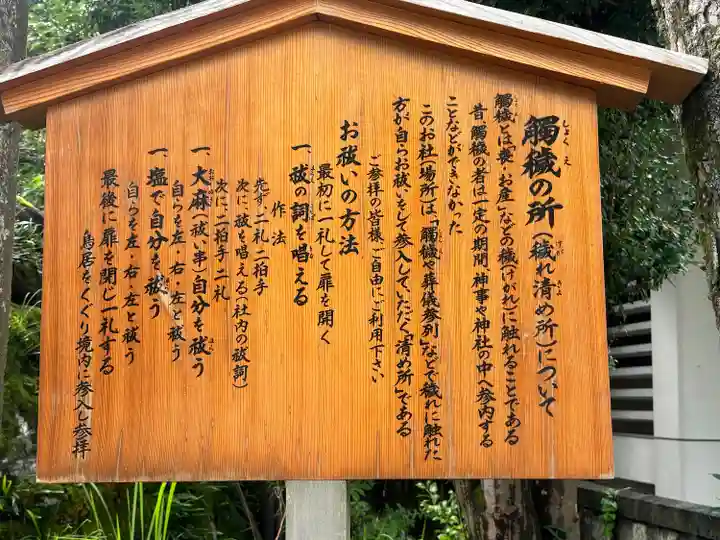 觸穢の所(穢れ清め所)について
觸穢とは「喪・お産」などの穢(けがれ)に触れることである
昔、觸穢の者は一定の期間、神事や神社の中へ参内する
ことなどができなかった
このお社(場所)は、「觸穢や葬儀参列」などで穢れに触れた
方が自らお祓いをして参入していただく「清め所」である
ご参拝の皆様、ご自由にご利用下さい
お祓いの方法
最初に一礼して扉を開く
一、祓の詞を唱える
作法
先ず、二礼二拍手
次に、祓を唱える(社内の祓詞)
次に、二拍手二礼
一、大麻(祓い串)自分を祓う
自らを左・右・左と祓う
一、塩で自分を祓う
自らを左・右・左と祓う
最後に扉を閉し一礼する
鳥居をくぐり境内に参入し参拝